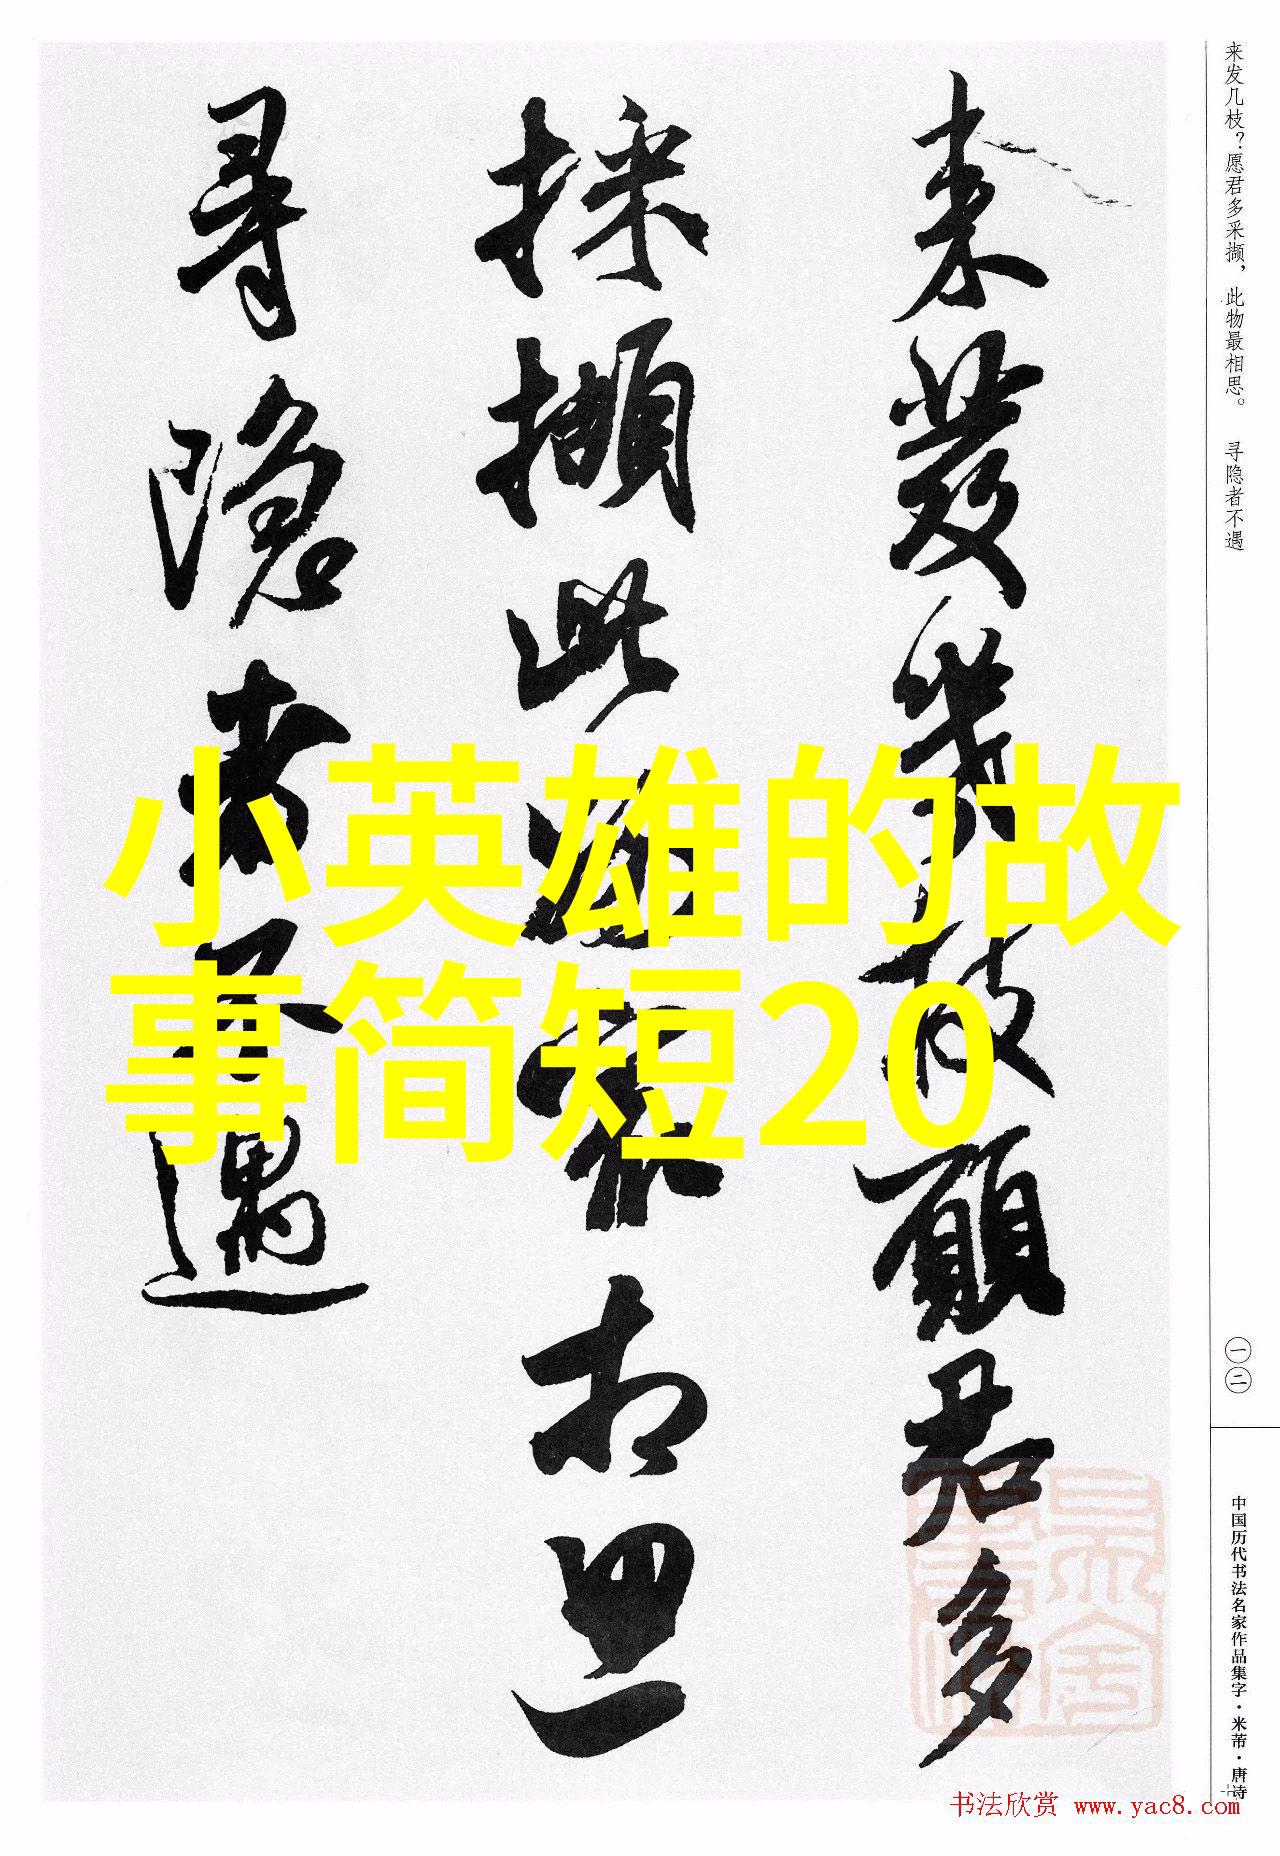 来发几枝？愿君多采撷，此物最相思。 寻隐者不遇
來發幾枝願君多
採擷此物最相思
尋隱者不遇
小英雄的故
事简短20
一二
中国历代书法名家作品集字·米芾·唐诗
书法欣赏 www.yac8.com